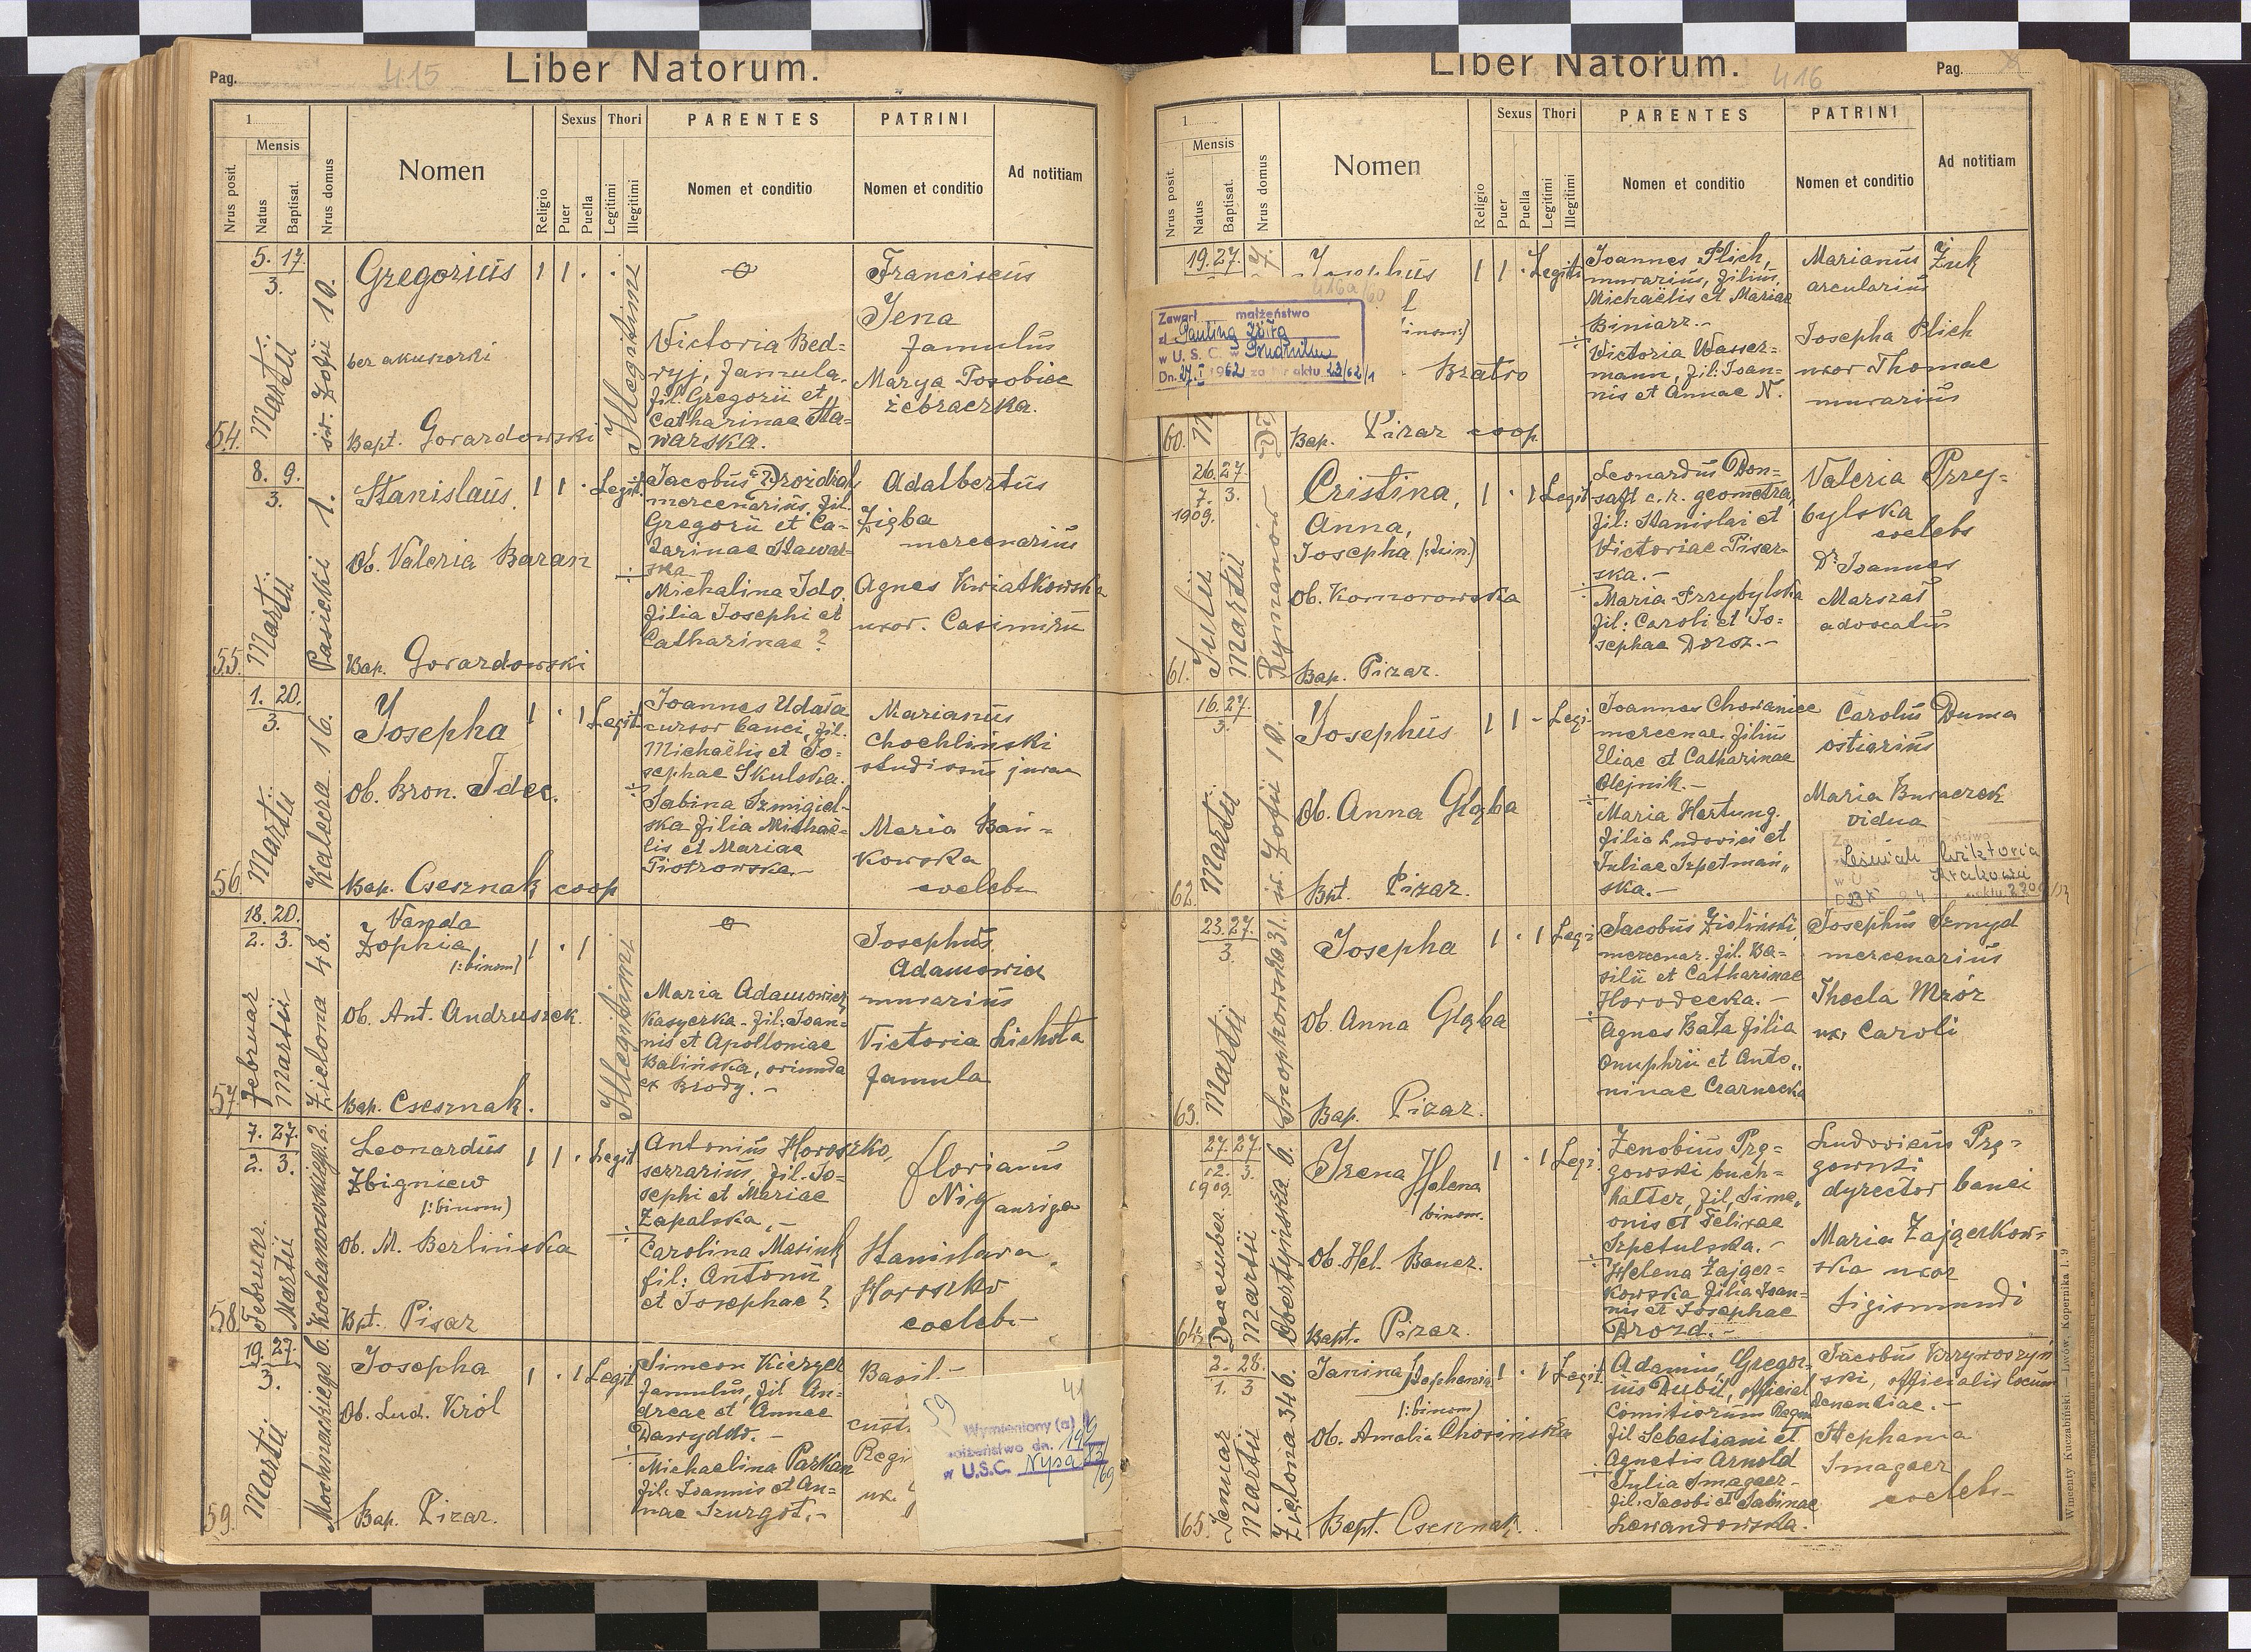 Pag.
415
Liber Natorum.
1
Mensis
Nrus posit.
Natus
Baptisat.
Nrus domus
Nomen
Religio
Sexus
Puer
Puella
Thori
Legitimi
Illegitimi
PARENTES
Nomen et conditio
PATRINI
Nomen et conditio
Ad notitiam
54.
5. 17.
3.
Martii
św. Zofii 10.
Gregorius
bez akuszerki
Bapt. Gorardowski
1 1 . .
Illegitimi
Victoria Bed=
ryj, famula.
fil. Gregorii et
Catharinae Sta=
warska.
Franciscus
Jena
famulus
Marya Posobiec
żebraczka.
55.
8. 9.
3.
Martii
Pasieki 1.
Stanislaus.
Ob. Valeria Baran
Bap. Gorardowski
1 1 . Legit.
Jacobus Droździak
mercenarius, fil.
Gregorii et Ca=
tarinae Stawar=
ska
÷
Michalina Ido.
filia Josephi et
Catharinae ?
Adalbertus
Zięba
mercenarius
Agnes Kwiatkowska
uxor. Casimiru
56
1. 20.
3.
Martii
Kalecza 16.
Josepha
Ob. Bron. Idec.
Bap. Csesznak coop
1 . 1 Legit.
Joannes Udała
cursor banci, fil.
Michaëlis et Jo=
sephae Skulska.
÷
Sabina Szmigiel=
ska filia Michaë=
lis et Mariae
Piotrowska.-
Marianus
Chochliński
studiosus jurae
Maria Bań=
kowska
coelebs
57.
18. 20.
2. 3.
Februar
Martii
Zielona 48.
Vanda
Zophia,
/:binom)
Ob. Ant. Andruszek.
Bap. Csesznak.
1 . 1
Illegitimi
Maria Adamowicz
kasyerka - fil: Joan=
nis et Apolloniae
Balińska, oriunda
ex Brody. -
Josephus
Adamowicz
murarius
Victoria Lichota
famula
58.
7. 27.
2. 3.
Februar.
Martii
Kochanowskiego 2.
Leonardus
Zbigniew
/:binom)
Ob. M. Berlińska
Bpt. Pizar
1 1 . Legit
Antonius Horoszko,
serrarius, fil. Jo=
sephi et Mariae
Zapalska, -
÷
Carolina Masiuk
fil: Antonii
et Josephae ?
Florianus
Nig auriga
Stanislava
Horoszko
coelebs
59.
19. 27.
3.
Martii
Mochnackiego 6.
Josepha
Ob. Lud. Król
Bap. Pizar.
1 . 1 Legit.
Simeon Kierzer
famulus, fil An=
dreae et Annae
Dawydko. -
÷
Michaelina Parkan
fil: Joannis et An=
nae Szurgot. -
Basil
cust
Regi
ux.
59
41
Wymieniony (a)
małżeństwo dn. 19
w U.S.C. Nysa
Liber Natorum.
416
Pag.
1
Mensis
Nrus posit.
Natus
Baptisat.
Nrus domus
Nomen
Religio
Sexus
Puer
Puella
Thori
Legitimi
Illegitimi
PARENTES
Nomen et conditio
PATRINI
Nomen et conditio
Ad notitiam
60.
19. 27.
Josephus
416a/60
Zawarł małżeństwo
z Pauliną Zółtą
w U. S. C. w Poznaniu
Dn. 27 I 1962 za Nr aktu 23/62/1
binom:)
Bratro
Bap. Pizar coop.
1 1 . Legiti
Joannes Plich,
murarius, filius
Michaëlis et Mariae
Biniarz. -
÷
Victoria Wasser=
mann, fil: Joan=
nis et Annae N.
Marianus Żuk
arcularius
Josepha Plich
uxor Thomae
murarius
61.
26. 27.
7. 3.
1909.
Julii
Martii
Rymanów
Cristina,
Anna,
Josepha /:trin.)
Ob. Komorowska
Bap. Pizar.
1 . 1 Legit
Leonardus Don=
saft c. r. geometra,
fil: Stanislai et
Victoriae Piser=
ska. -
÷
Maria Przybylska
fil: Caroli et Jo=
sephae Dorsz. -
Valeria Przy=
bylska
coelebs
Dr Joannes
Marszał
advocatus
62.
16. 27.
3.
Martii
św. Zofii 10.
Josephus
Ob. Anna Głąba
Bpt. Pizar.
1 1 - Legi-
Joannes Chowaniec
mercenar. filius
Eliae et Catharinae
Olejnik. -
÷
Maria Hartung.
filia Ludovici et
Juliae Szpetmań„
ska. -
Carolus Duma
ostiarius
Maria Buraczek
vidua
Zawarł małżeństwo
Leśniak Wiktoria
w U S Krakowie
63.
23. 27.
3.
Martii
Snopkowska 31.
Josepha
Ob. Anna Głąba
Bap. Pizar.
1 . 1 Legi
Jacobus Zieliński,
mercenar. fil. Ba=
silii et Catharinae
Horodecka. -
÷
Agnes Bata filia
Onuphrii et Anto„
ninae Czarnecka
Josephus Szmyd
mercenarius
Thecla Mróz
ux. Caroli
64.
27. 27.
12. 3.
1909.
December.
Martii
Obertyńska 6.
Irena Helena
binom.
Ob. Hel. Bauer.
Bapt. Pizar.
1 . 1 Legi.
Zenobius Prę=
gowski buch=
halter, fil. Sime„
onis et Felixae
Szpetulska. -
÷
Helena Zającz=
kowska filia Joan=
nis et Josephae
Drozd. -
Ludovicus Prę=
gowski
dyrector banci
Maria Zajączkow=
ska uxor
Sigismundi
65.
2. 28.
1. 3
Januar
Martii
Zielona 34b.
Janina Stephania
/:binom)
Ob. Amalia Chosińska
Bapt. Csesznak.
1 . 1 Legit.
Adamus, Gregor=
ius Dubii, official
Comitiorum Regni
fil Sebastiani et
Agnetis Arnold
÷
Julia Smagacz -
fil: Jacobi et Sabinae
Lewandowska.
Jacobus Krzywoszyń
ski, officialis locum
tenentiae. -
Stephania
Smagacz
coelebs
Wincenty Kuczabiński. — Lwów, Kopernika l. 9